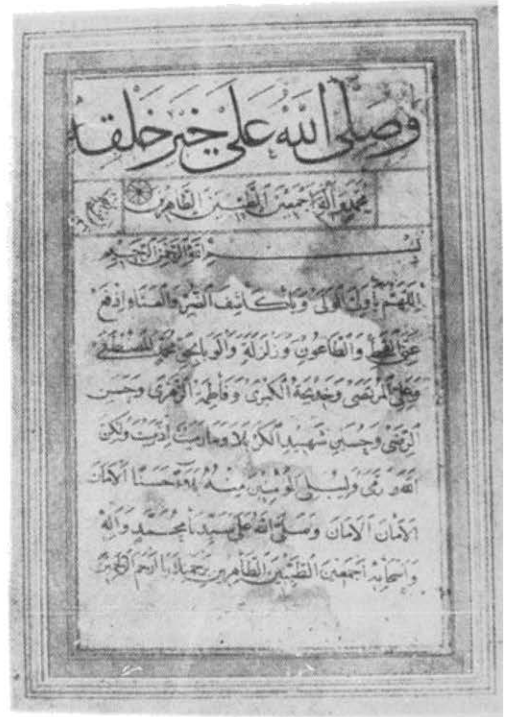 وَصَلَّى اللهُ عَلَى خَيْرِ خَلْقِهِ
مُحَمَّدٍ وَآلِهِ أَجْمَعِينَ الطَّيِّبِينَ الطَّاهِرِينَ
بِسْمِ اللهِ الرَّحْمٰنِ الرَّحِيمِ
اللّٰهُمَّ يَا وَلِيَّ الْوَلَى وَيَا كَاشِفَ الضُّرِّ وَ اِدْفَعْ
عَنَّا وَالطَّاعُونَ وَزَلْزَلَةَ وَالْوَبَا بِحَقِّ مُحَمَّدٍ الْمُصْطَفَى
وَعَلِيِّ الْمُرْتَضَى وَخَدِيجَةَ الْكُبْرَى وَفَاطِمَةَ الزَّهْرَى وَحَسَنِ
الرِّضَى وَحُسَيْنِ شَهِيدِ الْكَرْبَلَا وَمَا رَمَيْتَ إِذْ رَمَيْتَ وَلٰكِنَّ
اللهَ رَمَى وَلِيُبْلِيَ الْمُؤْمِنِينَ مِنْهُ بَلَاءً حَسَنًا الْأَمَانَ
الْأَمَانَ الْأَمَانَ وَصَلَّى اللهُ عَلَى سَيِّدِنَا مُحَمَّدٍ وَآلِهِ
وَأَصْحَابِهِ أَجْمَعِينَ الطَّيِّبِينَ الطَّاهِرِينَ بِرَحْمَتِكَ يَا أَرْحَمَ الرَّاحِمِينَ